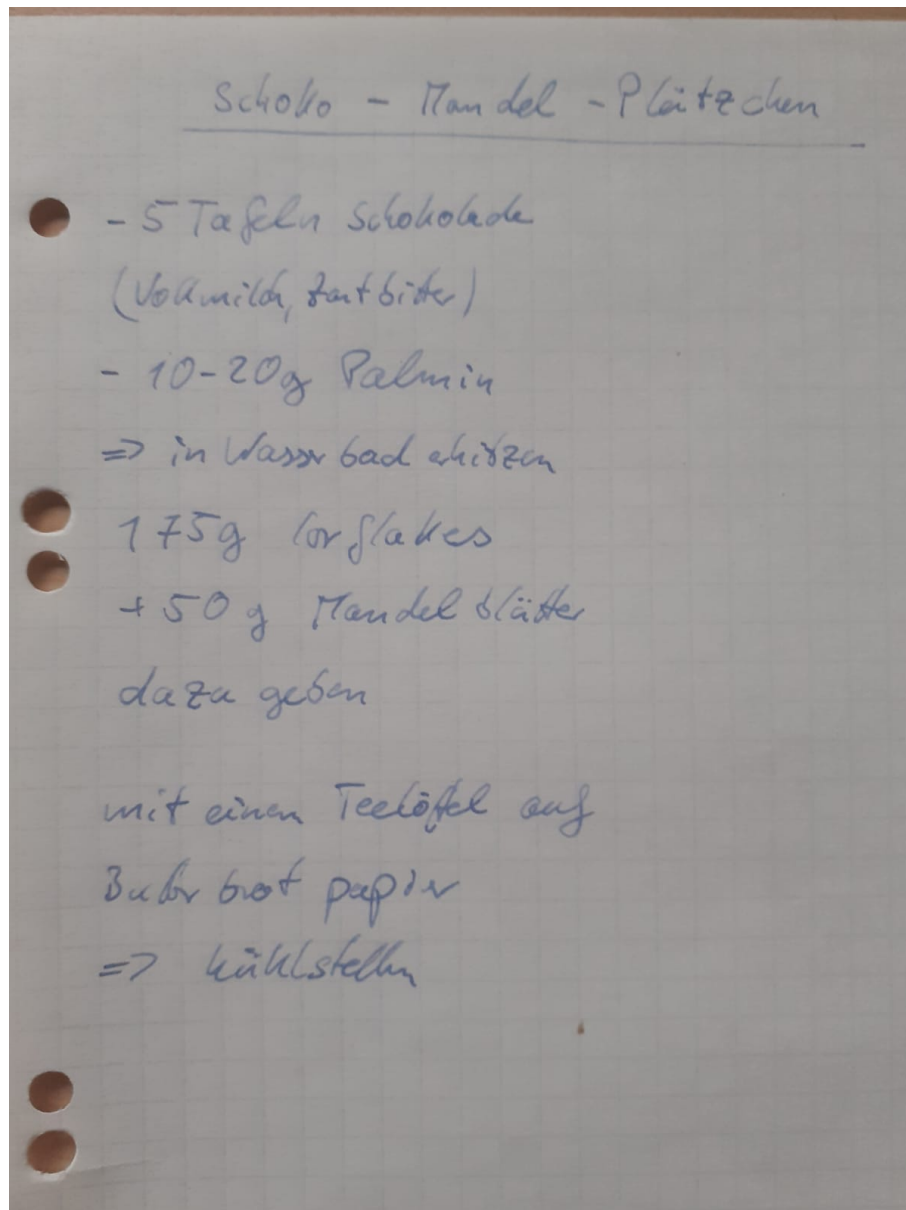 Schoko - Mandel - Plätzchen
- 5 Tafeln Schokolade
(Vollmilch, Zartbitter)
- 10-20g Palmin
=> in Wasserbad erhitzen
175g Corflakes
+ 50 g Mandelblätter
dazu geben
mit einen Teelöffel auf
Butterbrot papier
=> kühlstellen